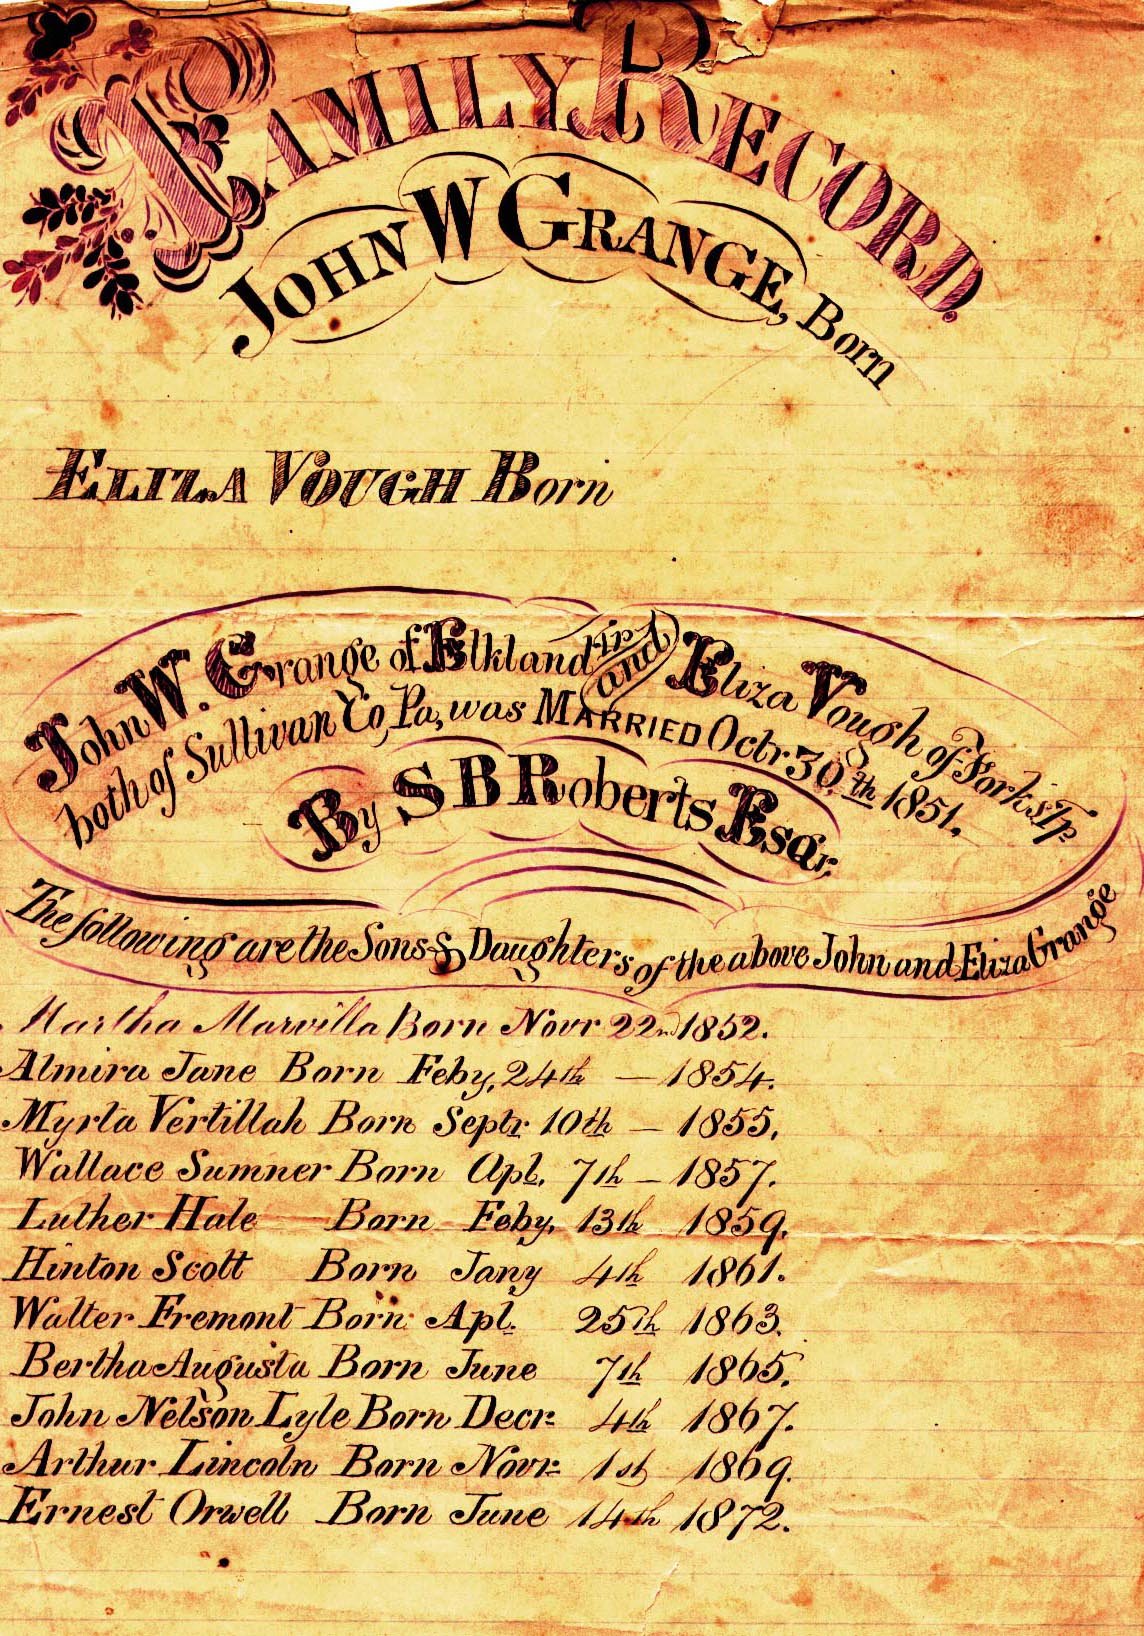 FAMILY RECORD.
JOHN W GRANGE, Born
ELIZA VOUGH Born
John W. Grange of Elkland Tp. and Eliza Vough of Forks Tp.
both of Sullivan Co, Pa, was MARRIED Octr 30.th 1851.
By S B Roberts Esqr.
The following are the Sons & Daughters of the above John and Eliza Grange
Martha Marvilla Born Novr 22nd 1852.
Almira Jane Born Feby, 24th — 1854.
Myrta Vertillah Born Septr 10th — 1855,
Wallace Sumner Born Apl. 7th — 1857.
Luther Hale Born Feby, 13th 1859,
Hinton Scott Born Jany 4th 1861.
Walter Fremont Born Apl. 25th 1863.
Bertha Augusta Born June 7th 1865.
John Nelson Lyle Born Decr 4th 1867.
Arthur Lincoln Born Novr 1st 1869.
Ernest Orwell Born June 14th 1872.